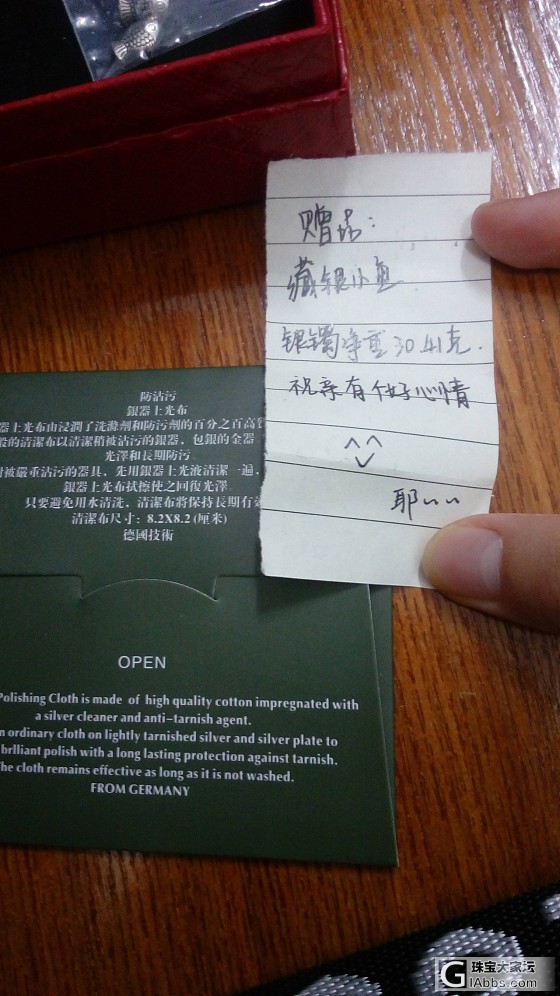 赠品：
藏银小鱼
银镯净重30.41克.
祝亲有个好心情
^^
耶~~
防沾污
銀器上光布
器上光布由浸潤了洗滌劑和防污劑的百分之百高
般的清潔布以清潔稍被沾污的銀器，包銀的金器
光澤和長期防污
對被嚴重沾污的器具，先用銀器上光液清潔一遍，
銀器上光布拭擦使之回復光澤。
只要避免用水清洗，清潔布將保持長期有效
清潔布尺寸：8.2X8.2 (厘米)
德國技術
OPEN
Polishing Cloth is made of high quality cotton impregnated with
a silver cleaner and anti-tarnish agent.
n ordinary cloth on lightly tarnished silver and silver plate to
brlliant polish with a long lasting protection against tarnish.
he cloth remains effective as long as it is not washed.
FROM GERMANY
珠宝大家坛
GIAbbs.com